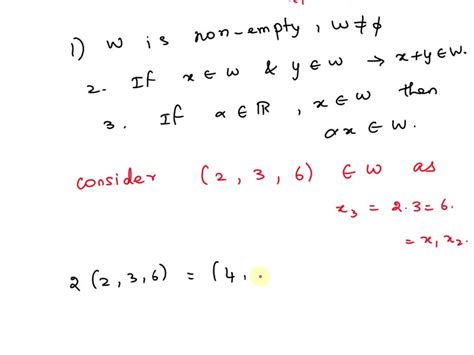 1) W is non-empty, W ≠ ϕ
2. If x ∈ W & y ∈ W → x+y ∈ W.
3. If α ∈ ℝ, x ∈ W then
αx ∈ W.
consider (2, 3, 6) ∈ W as
x₃ = 2.3 = 6.
= x₁ x₂.
2 (2, 3, 6) = (4,